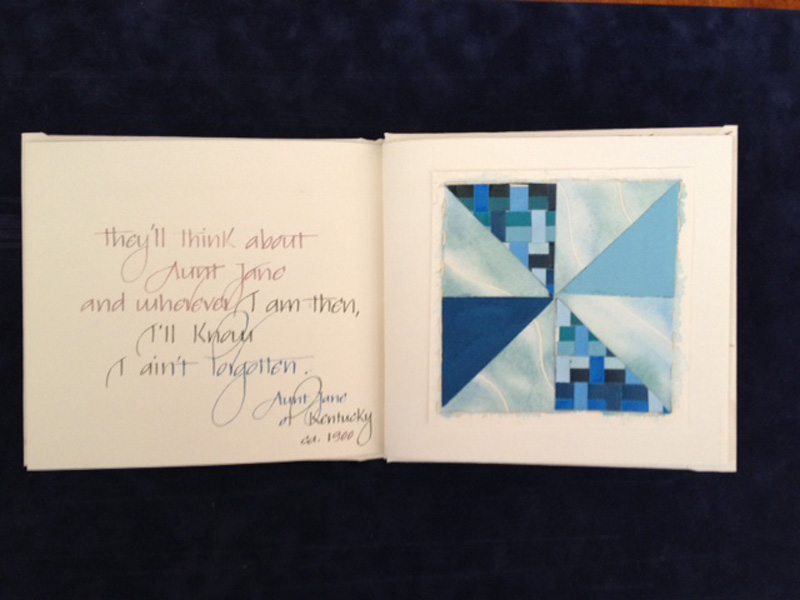 they'll think about
Aunt Jane
and wherever I am then,
I'll know
I ain't forgotten.
Aunt Jane
of Kentucky
ca. 1900